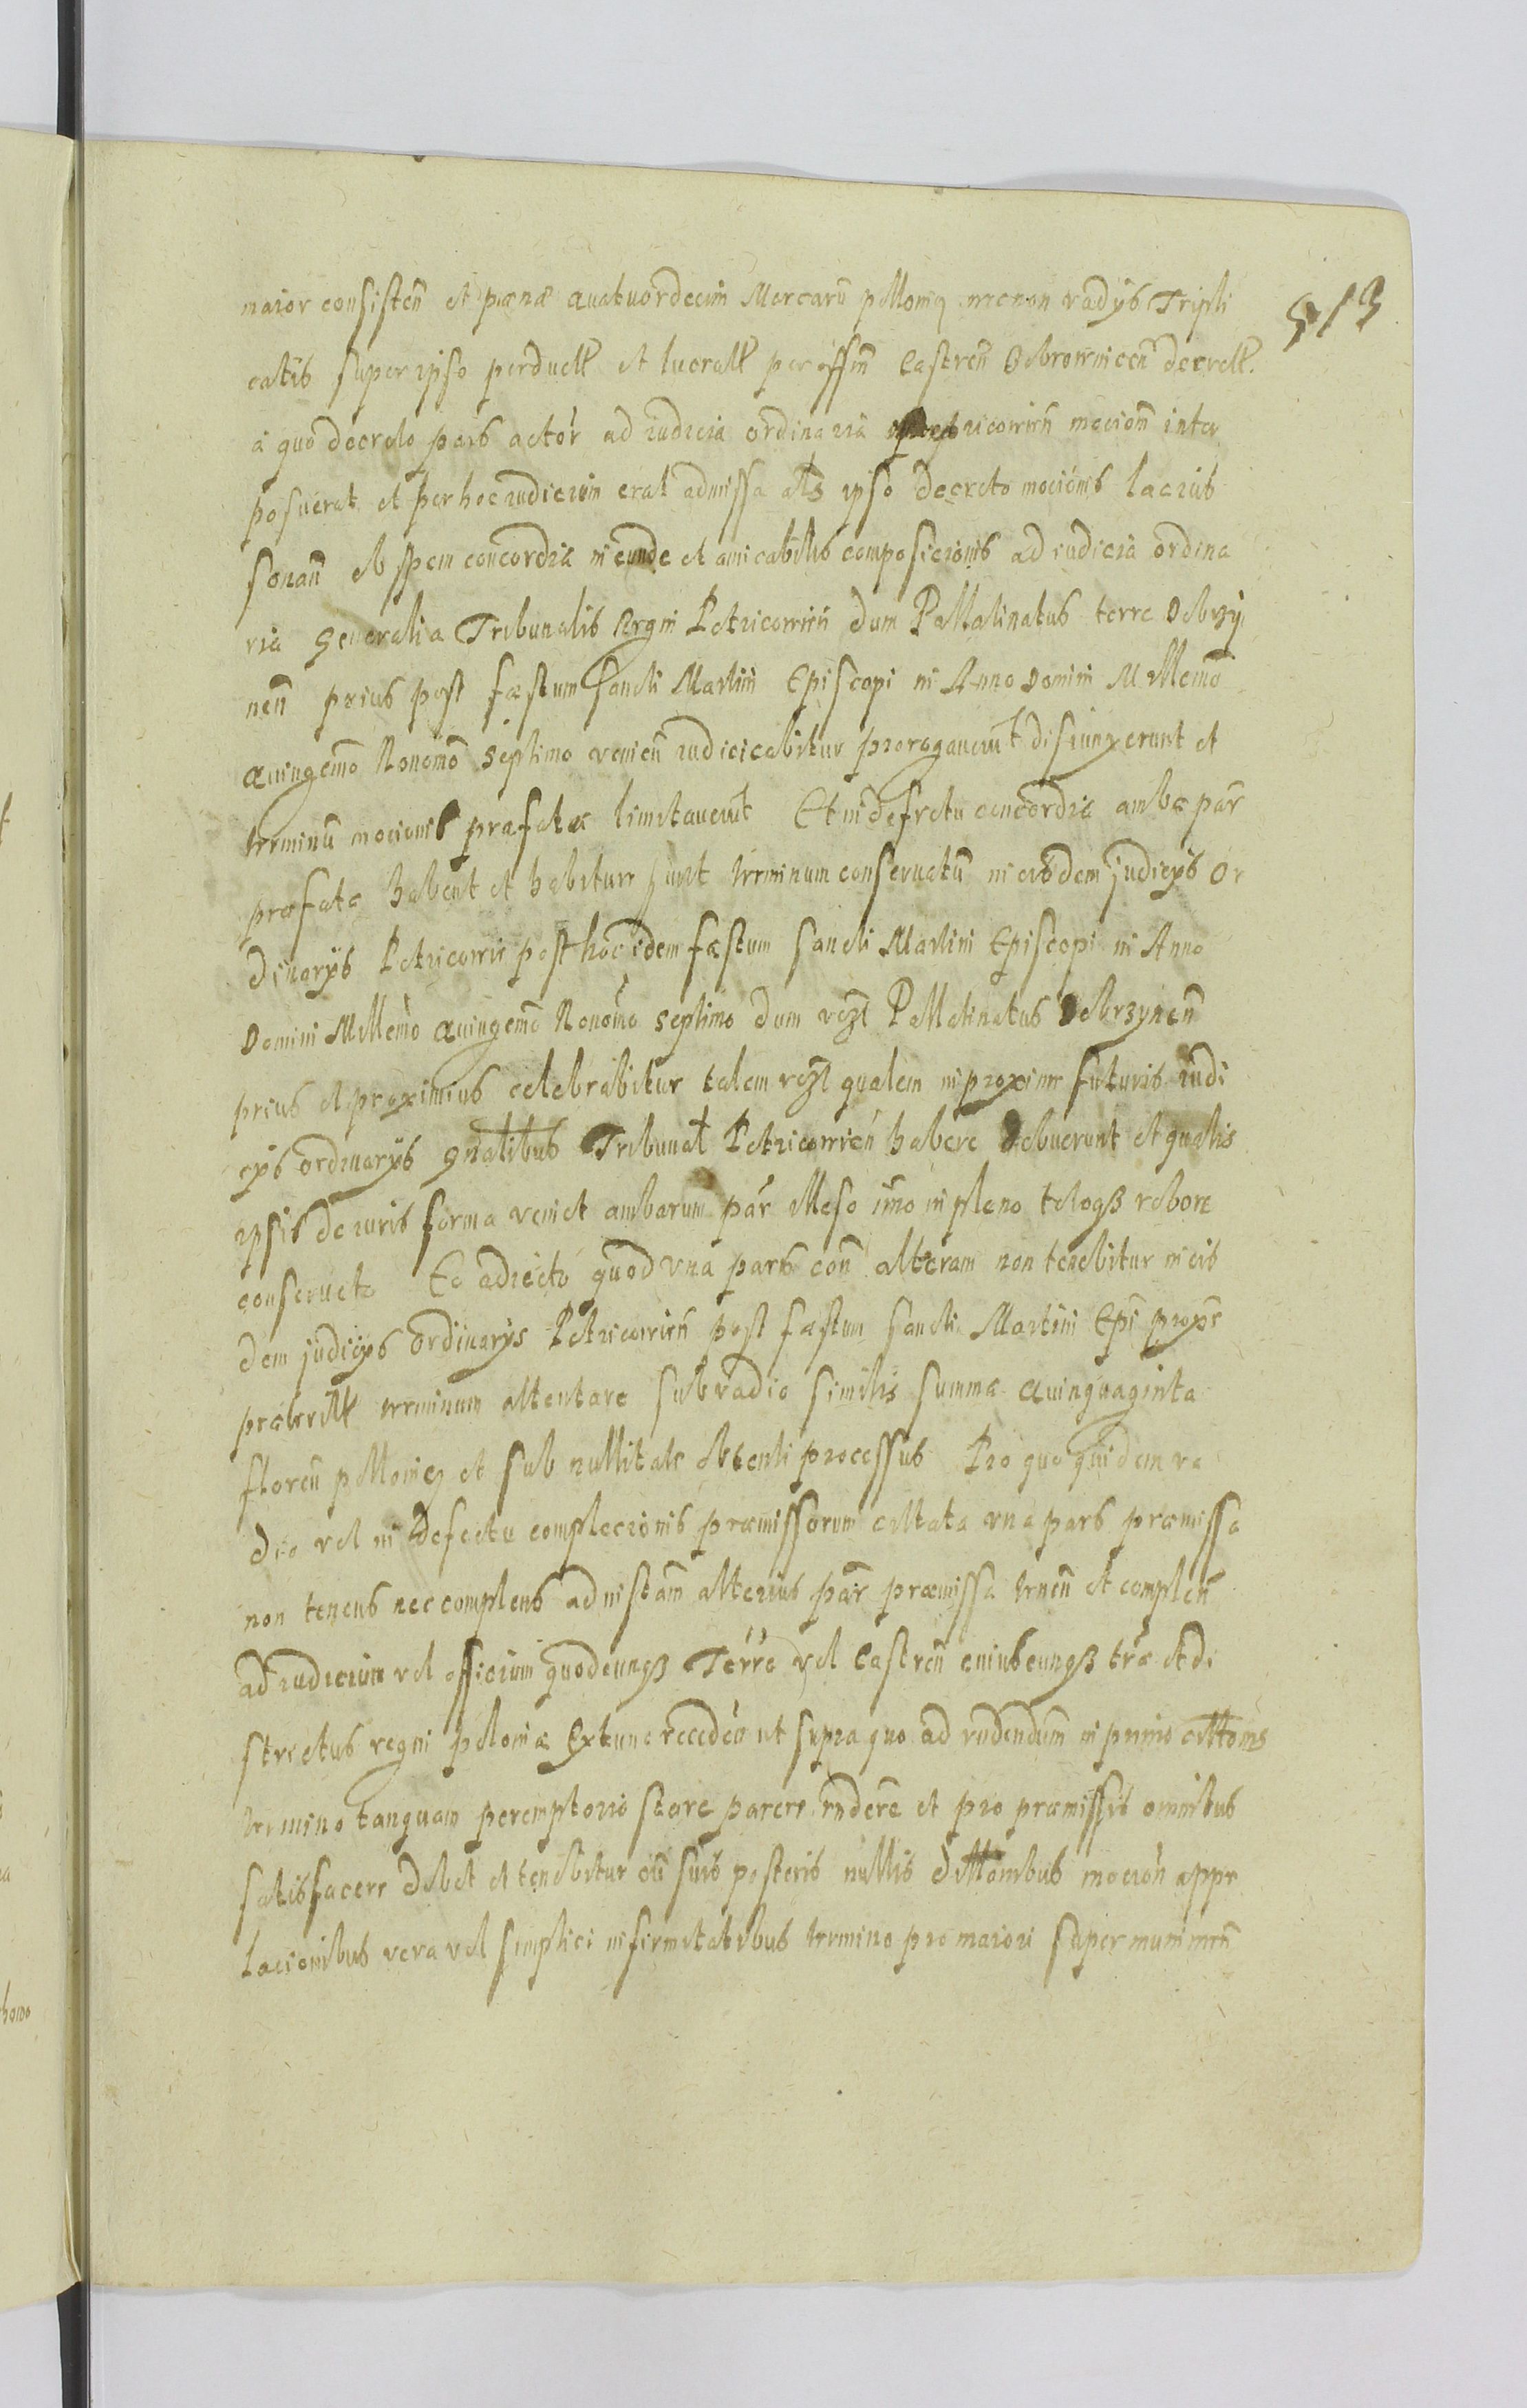 513
maior consisteñ et pænæ Quatuordecim Mercarũ pollonicz necnon vadÿs Tripli
catis super ipso perduell et lucratt per offm̃ Castreñ Bobrownicen̄ decrett.
a quo decreto pars actor ad iudicia ordinaria Petricovien̄ mocionē inter
posuerat et per hoc iudicium erat admissa alŝ ipso decreto mocionis lacius
sonañ ob spem concordiæ ineunde et amicabilis composicionis ad iudicia ordina
ria generalia Tribunalis Regni Petricovien̄ dum Pallatinatus terre Dobrzy
neñ prius post fæstum sancti Martini Episcopi in Anno Domini Millemo
Quingemo Nonomo septimo venieñ iudicicabitur prorogauerūt disiunxerunt et
terminũ mocionis præfatæ limitauerũt Et in defectu concordiæ ambæ par̃
præfatæ habent et habituræ sunt terminum conseruatũ in eisdem judicÿs or
dinarÿs Petricovie post hoc idem fæstum sancti Martini Episcopi in Anno
Domini Millemo Quingemo Nonomo septimo dum vcz̃t Pallatinatus Dobrzynen̄
prius et proximius celebrabitur talem vcz̃t qualem in proxime futuris iudi
cÿs ordinarÿs gñalibus Tribunał Petricovień habere debuerunt et qualis
ipsis de iuris forma veniet ambarum par̃ illeso imo in pleno tetogß robore
conseruato Eo adiecto quod vna pars con̄ alteram non tenebitur in eis
dem judicÿs ordinarÿs Petricovień post fæstum sancti Martini Ep̄i proxe
præteritt terminum attentare sub vadio similis summæ Quinquaginta
floreñ pollonicz et sub nullitate obtenti processus Pro quo quidem va
dio vel in defectu complecionis præmissorum citata vna pars præmissa
non tenens nec complens ad instam̄ alterius par̃ præmissa teneñ et compleñ
ad iudicium vel officium quodcunqß Terre vel Castreñ cuiuscunqß trǣ et di
strictus regni poloniæ Extunc recedeñ ut supra quo ad rñdendum in primo cittonis
termino tanquam peremptorio stare parere rñdere et pro præmissis omnibus
satisfacere debet et tenebitur cũ suis posteris nullis dillonibus mocioñ appe
lacionibus vera vel simplici infirmitatibus termino pro maiori super munimeñ